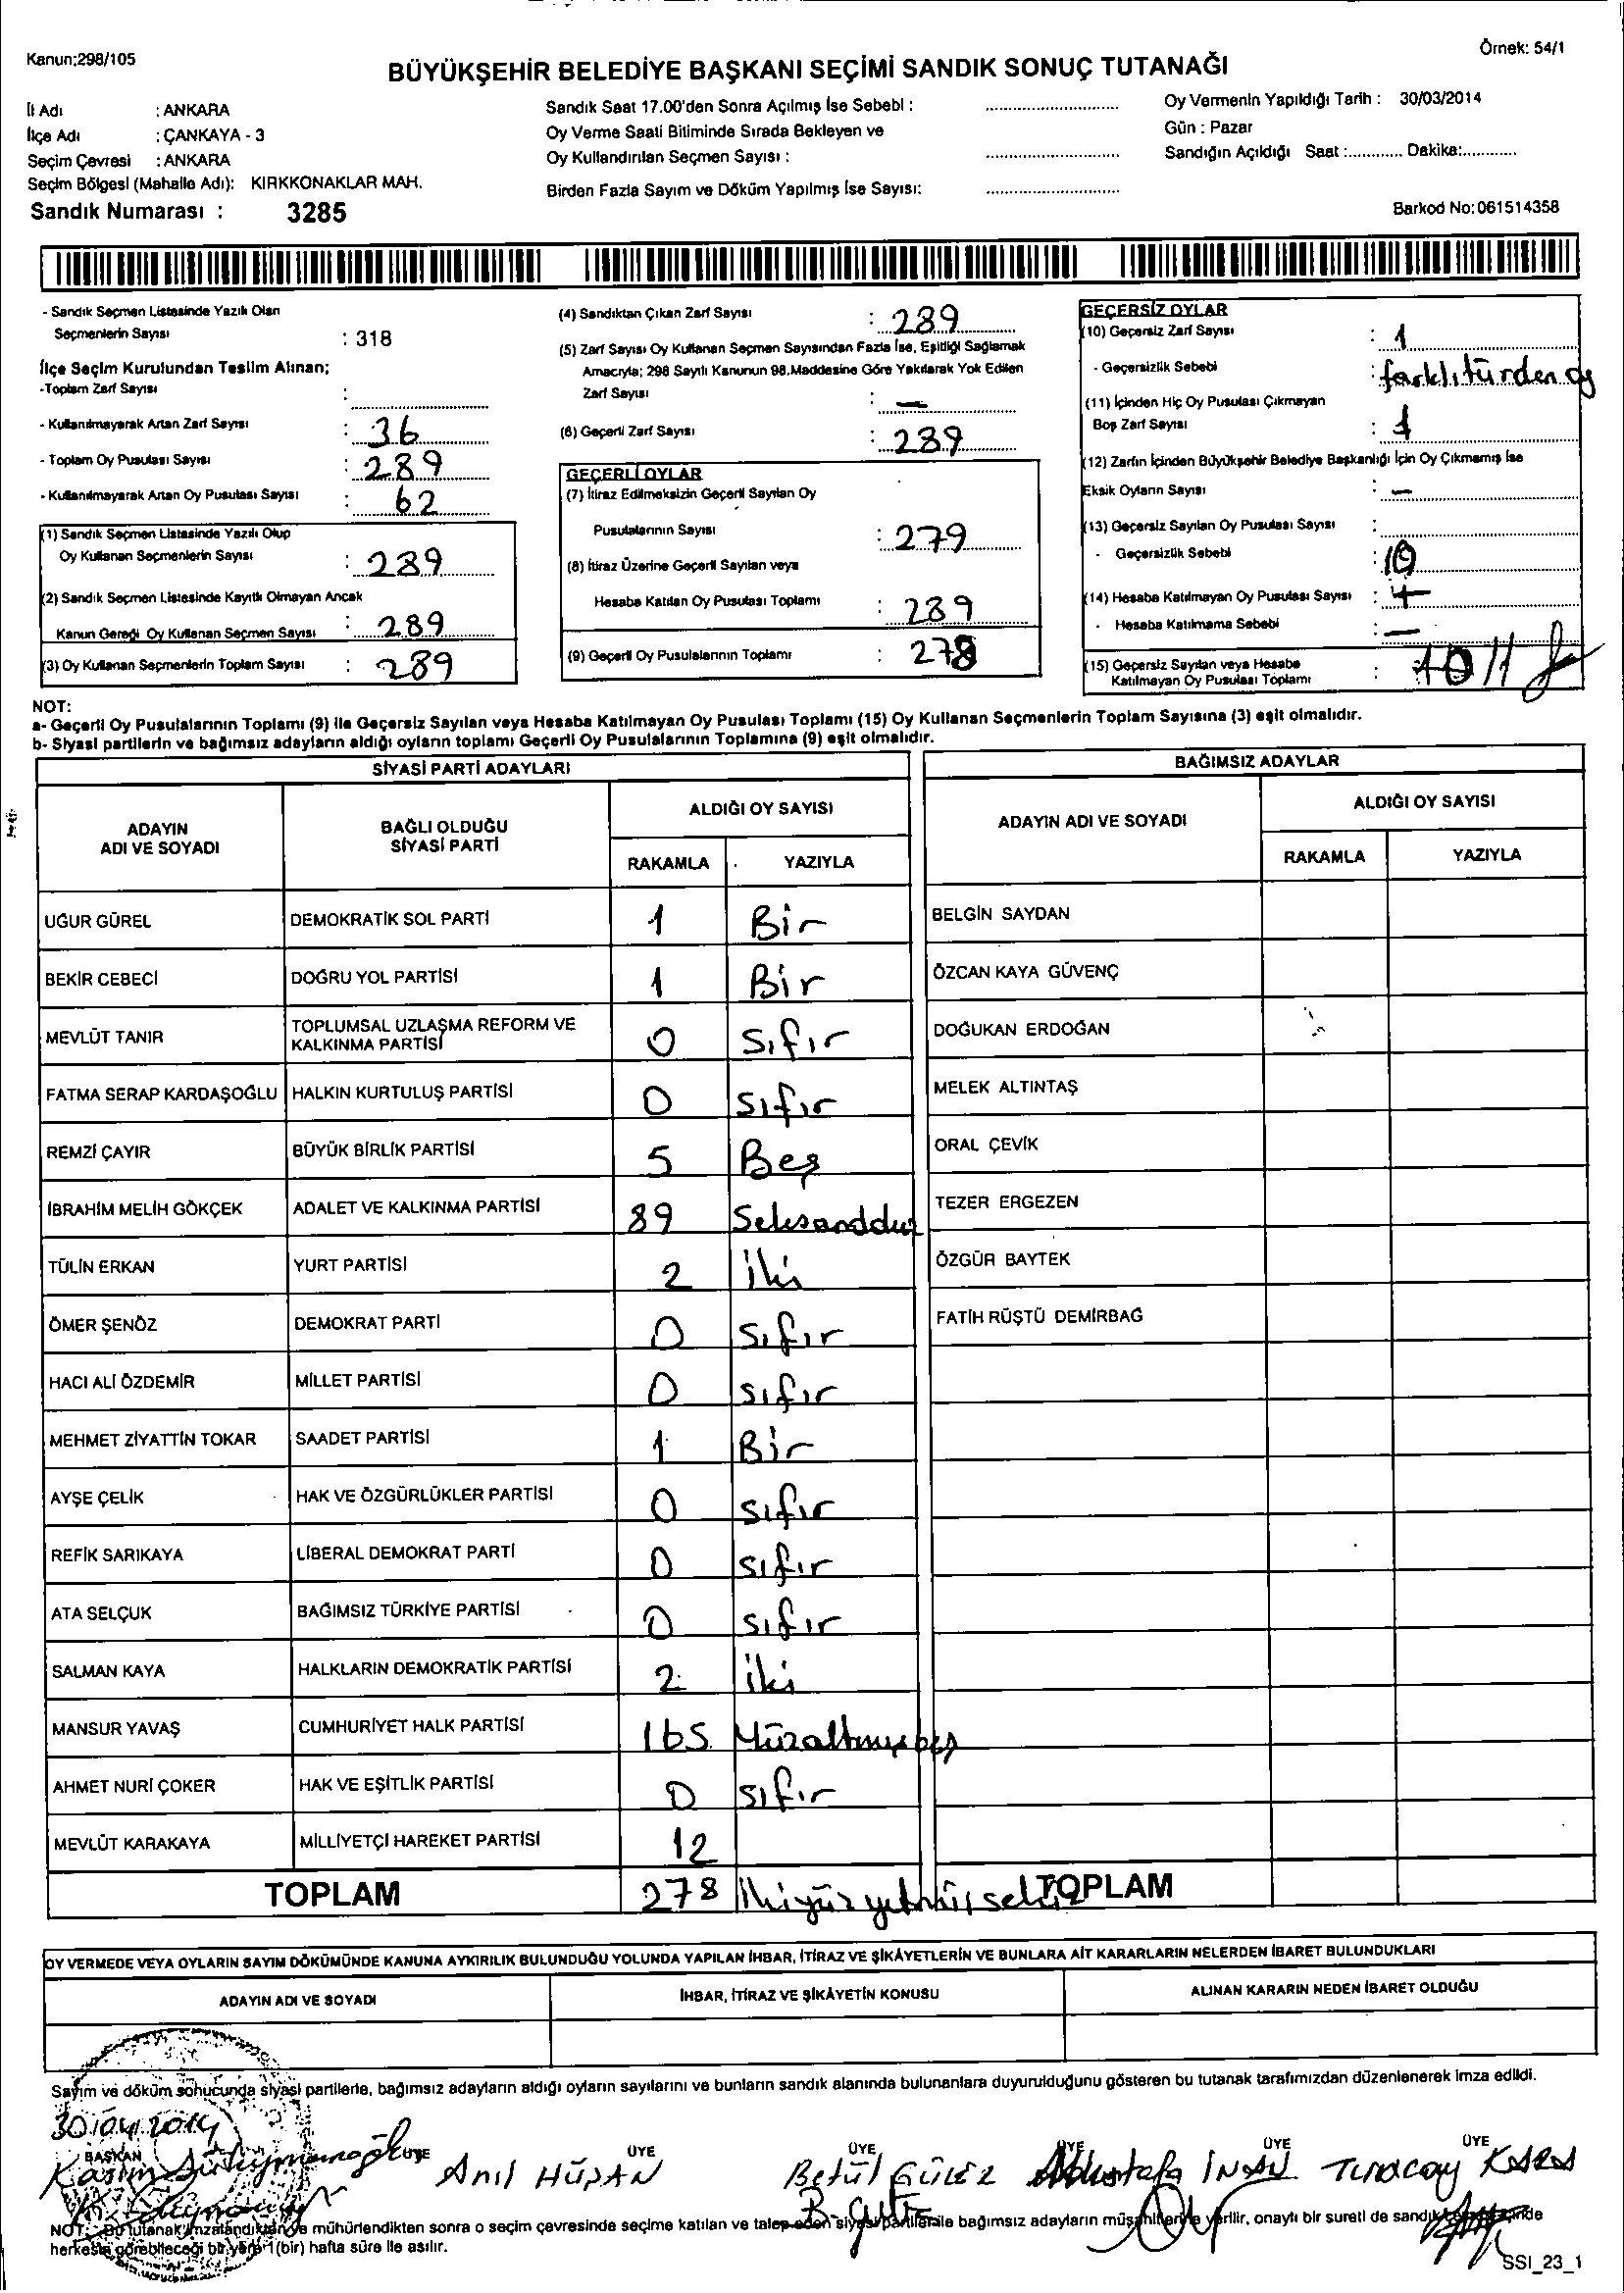 Kanun;298/105
Örnek: 54/1
BÜYÜKŞEHİR BELEDİYE BAŞKANI SEÇİMİ SANDIK SONUÇ TUTANAĞI
İl Adı : ANKARA
İlçe Adı : ÇANKAYA - 3
Seçim Çevresi : ANKARA
Seçim Bölgesi (Mahalle Adı): KIRKKONAKLAR MAH.
Sandık Numarası : 3285
Sandık Saat 17.00'den Sonra Açılmış İse Sebebi :
Oy Verme Saati Bitiminde Sırada Bekleyen ve
Oy Kullandırılan Seçmen Sayısı :
Birden Fazla Sayım ve Döküm Yapılmış İse Sayısı:
Oy Vermenin Yapıldığı Tarih : 30/03/2014
Gün : Pazar
Sandığın Açıldığı Saat :............ Dakika:............
Barkod No:061514358
- Sandık Seçmen Listesinde Yazılı Olan
Seçmenlerin Sayısı : 318
İlçe Seçim Kurulundan Teslim Alınan;
-Toplam Zarf Sayısı :
- Kullanılmayarak Artan Zarf Sayısı : 36
- Toplam Oy Pusulası Sayısı : 289
- Kullanılmayarak Artan Oy Pusulası Sayısı : 62
(1) Sandık Seçmen Listesinde Yazılı Olup
Oy Kullanan Seçmenlerin Sayısı : 289
(2) Sandık Seçmen Listesinde Kayıtlı Olmayan Ancak
Kanun Gereği Oy Kullanan Seçmen Sayısı : 289
(3) Oy Kullanan Seçmenlerin Toplam Sayısı : 289
(4) Sandıktan Çıkan Zarf Sayısı : 289
(5) Zarf Sayısı Oy Kullanan Seçmen Sayısından Fazla İse, Eşitliği Sağlamak
Amacıyla; 298 Sayılı Kanunun 98.Maddesine Göre Yakılarak Yok Edilen
Zarf Sayısı : —
(6) Geçerli Zarf Sayısı : 289
GEÇERLİ OYLAR
(7) İtiraz Edilmeksizin Geçerli Sayılan Oy
Pusulalarının Sayısı : 279
(8) İtiraz Üzerine Geçerli Sayılan veya
Hesaba Katılan Oy Pusulası Toplamı : 289
(9) Geçerli Oy Pusulalarının Toplamı : 278
GEÇERSİZ OYLAR
(10) Geçersiz Zarf Sayısı : 1
- Geçersizlik Sebebi : farklı türden oy
(11) İçinden Hiç Oy Pusulası Çıkmayan
Boş Zarf Sayısı : 1
(12) Zarfın İçinden Büyükşehir Belediye Başkanlığı İçin Oy Çıkmamış İse
Eksik Oyların Sayısı : —
(13) Geçersiz Sayılan Oy Pusulası Sayısı :
- Geçersizlik Sebebi : 10
(14) Hesaba Katılmayan Oy Pusulası Sayısı :
- Hesaba Katılmama Sebebi : —
(15) Geçersiz Sayılan veya Hesaba
Katılmayan Oy Pusulası Toplamı : 10 11
NOT:
a- Geçerli Oy Pusulalarının Toplamı (9) ile Geçersiz Sayılan veya Hesaba Katılmayan Oy Pusulası Toplamı (15) Oy Kullanan Seçmenlerin Toplam Sayısına (3) eşit olmalıdır.
b- Siyasi partilerin ve bağımsız adayların aldığı oyların toplamı Geçerli Oy Pusulalarının Toplamına (9) eşit olmalıdır.
SİYASİ PARTİ ADAYLARI
ADAYIN ADI VE SOYADI
BAĞLI OLDUĞU SİYASİ PARTİ
ALDIĞI OY SAYISI
RAKAMLA YAZIYLA
UĞUR GÜREL DEMOKRATİK SOL PARTİ 1 Bir
BEKİR CEBECİ DOĞRU YOL PARTİSİ 1 Bir
MEVLÜT TANIR TOPLUMSAL UZLAŞMA REFORM VE KALKINMA PARTİSİ 0 sıfır
FATMA SERAP KARDAŞOĞLU HALKIN KURTULUŞ PARTİSİ 0 sıfır
REMZİ ÇAYIR BÜYÜK BİRLİK PARTİSİ 5 Beş
İBRAHİM MELİH GÖKÇEK ADALET VE KALKINMA PARTİSİ 89
TÜLİN ERKAN YURT PARTİSİ 2 iki
ÖMER ŞENÖZ DEMOKRAT PARTİ 0 sıfır
HACI ALİ ÖZDEMİR MİLLET PARTİSİ 0 sıfır
MEHMET ZİYATTİN TOKAR SAADET PARTİSİ 1 Bir
AYŞE ÇELİK HAK VE ÖZGÜRLÜKLER PARTİSİ 0 sıfır
REFİK SARIKAYA LİBERAL DEMOKRAT PARTİ 0 sıfır
ATA SELÇUK BAĞIMSIZ TÜRKİYE PARTİSİ 0 sıfır
SALMAN KAYA HALKLARIN DEMOKRATİK PARTİSİ 2 iki
MANSUR YAVAŞ CUMHURİYET HALK PARTİSİ 165 Yüzaltmışbeş
AHMET NURİ ÇOKER HAK VE EŞİTLİK PARTİSİ 0 sıfır
MEVLÜT KARAKAYA MİLLİYETÇİ HAREKET PARTİSİ 12
TOPLAM 278 ikiyüzyetmişsekiz
BAĞIMSIZ ADAYLAR
ADAYIN ADI VE SOYADI
ALDIĞI OY SAYISI
RAKAMLA YAZIYLA
BELGİN SAYDAN
ÖZCAN KAYA GÜVENÇ
DOĞUKAN ERDOĞAN
MELEK ALTINTAŞ
ORAL ÇEVİK
TEZER ERGEZEN
ÖZGÜR BAYTEK
FATİH RÜŞTÜ DEMİRBAĞ
TOPLAM
OY VERMEDE VEYA OYLARIN SAYIM DÖKÜMÜNDE KANUNA AYKIRILIK BULUNDUĞU YOLUNDA YAPILAN İHBAR, İTİRAZ VE ŞİKÂYETLERİN VE BUNLARA AİT KARARLARIN NELERDEN İBARET BULUNDUKLARI
ADAYIN ADI VE SOYADI İHBAR, İTİRAZ VE ŞİKÂYETİN KONUSU ALINAN KARARIN NEDEN İBARET OLDUĞU
Sayım ve döküm sonucunda siyasi partilerle, bağımsız adayların aldığı oyların sayılarını ve bunların sandık alanında bulunanlara duyurulduğunu gösteren bu tutanak tarafımızdan düzenlenerek imza edildi.
30/04/2014
BAŞKAN ÜYE ÜYE ÜYE ÜYE ÜYE ÜYE
Kasım Süleymanoğlu Anıl Betül Mustafa İNAN
NOT: Bu tutanak imzalandıktan ve mühürlendikten sonra o seçim çevresinde seçime katılan ve talep eden siyasi partilerle bağımsız adayların müşahitlerine verilir, onaylı bir sureti de sandık çevresinde
herkesin görebileceği bir yere 1(bir) hafta süre ile asılır.
SSI_23_1